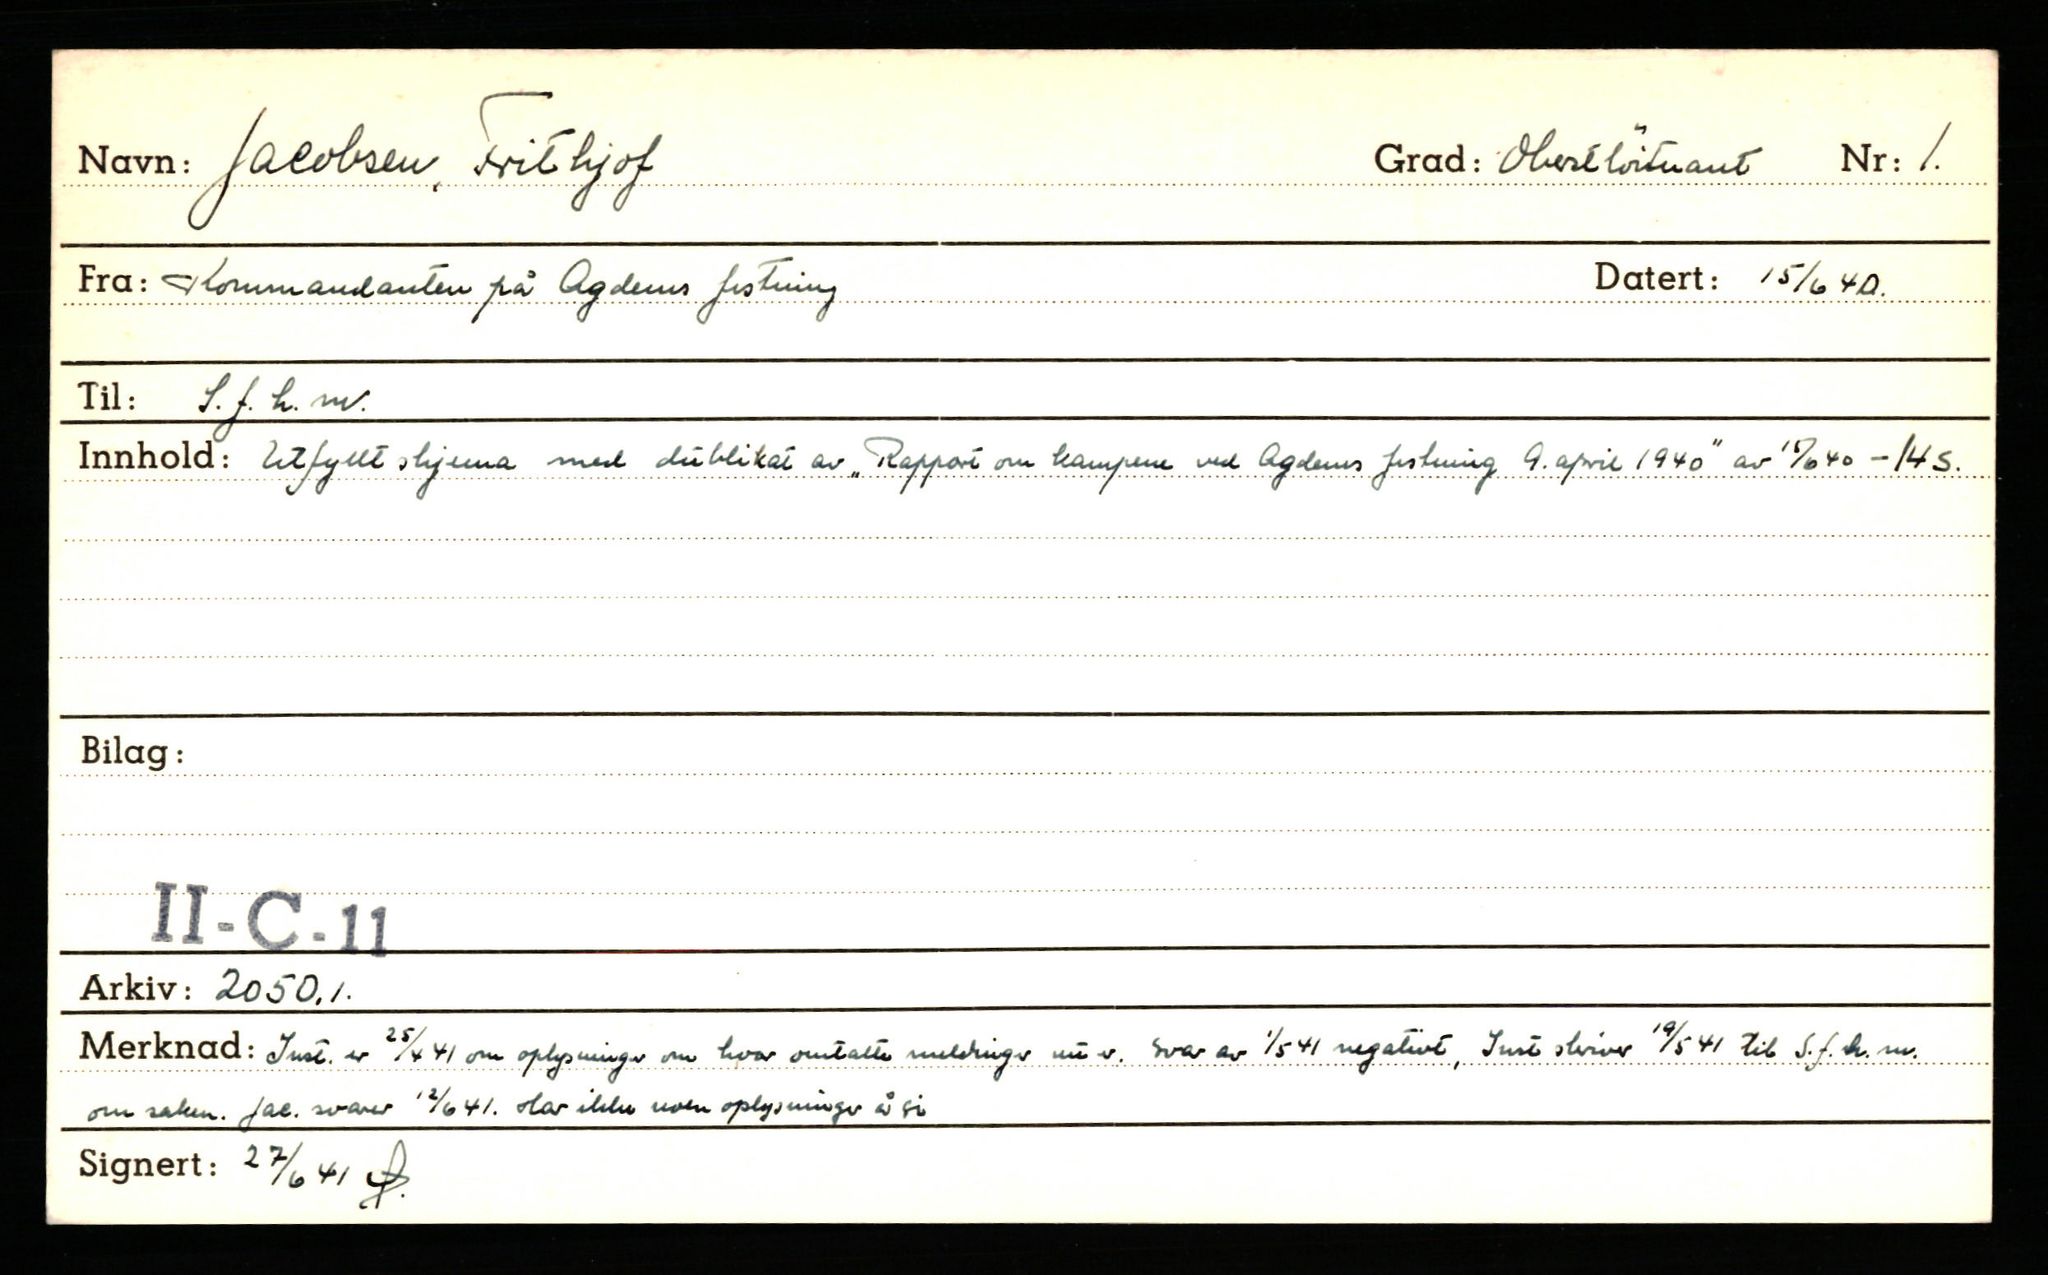 Navn: Jacobsen, Frithjof Grad: Oberstlöitnant Nr: 1.
Fra: Kommandanten på Agdenes festning Datert: 15/6 40.
Til: S.f.h.m.
Innhold: Utfyllt skjema med dublikat av „Rapport om kampene ved Agdenes festning 9. april 1940" av 15/6 40 - 14 s.
Bilag:
II-C-11
Arkiv: 2050.1.
Merknad: Inst. er 25/4 41 om oplysninger om hvor omtalte meldinger nu er. Svar av 1/5 41 negativt, Inst skriver 19/5 41 til S.f.h.m.
om saken. Jac. svarer 12/6 41. Har ikke noen oplysninger å gi
Signert: 27/6 41